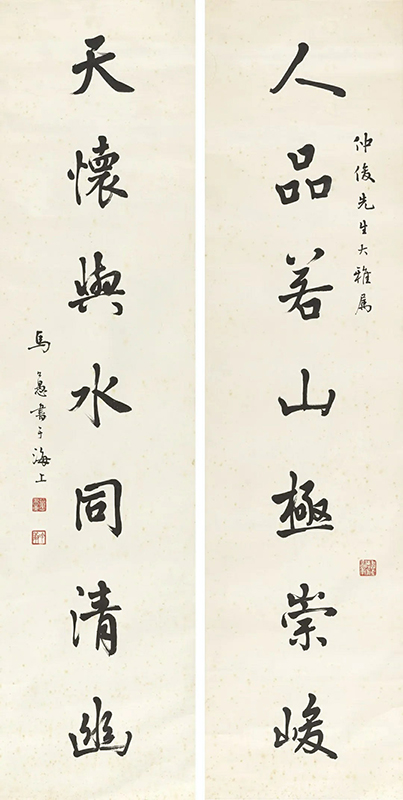 仲俊先生大雅属
人品若山極崇峻
天懷與水同清幽
馬公愚書于海上